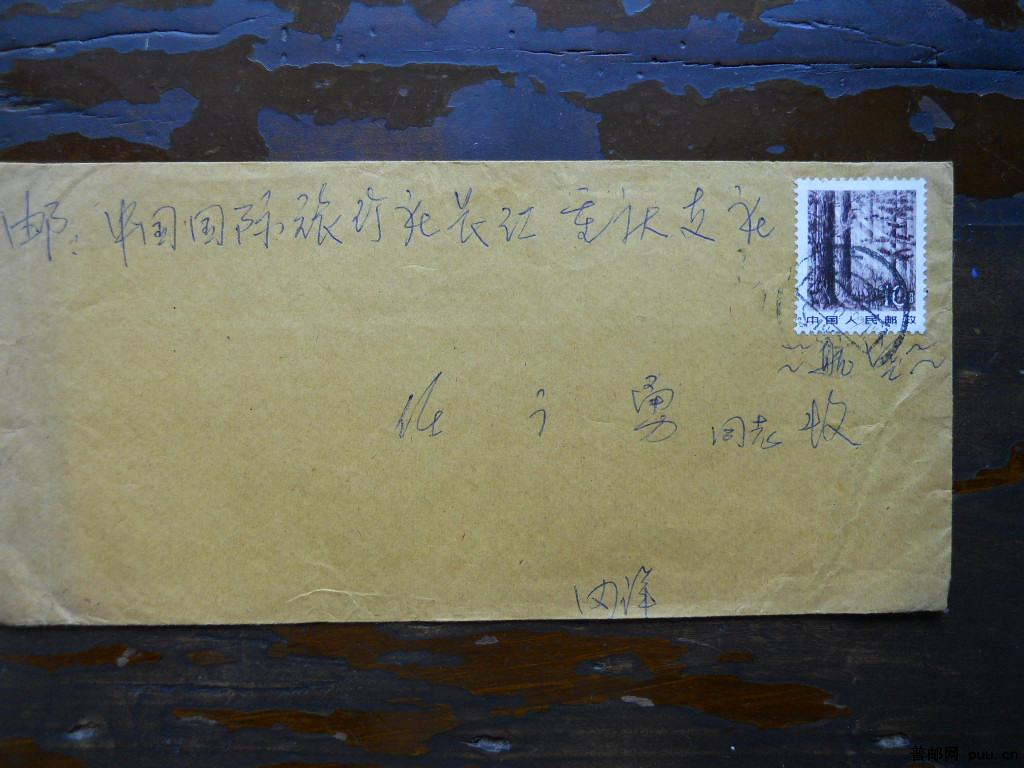 邮：中国国际旅行社长江重庆支社
10
中国人民邮政
航空
任 勇 同志 收
内详
普邮网 puu.cn